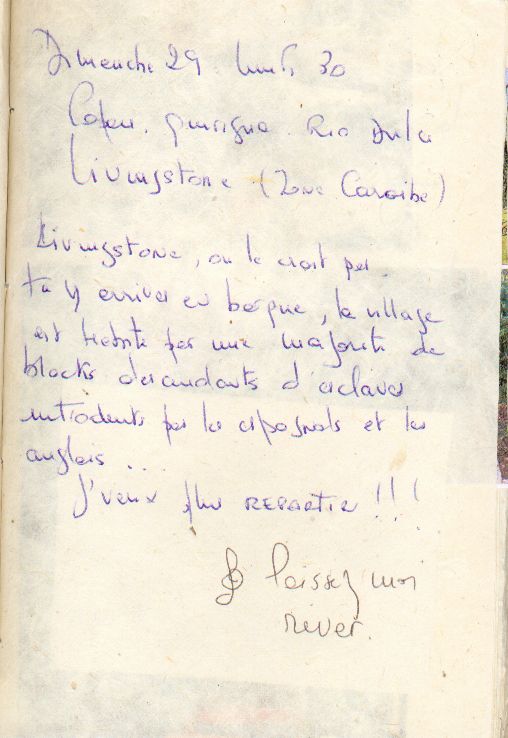 Dimanche 29 lundi 30
Copan. quirigua. Rio Dulce
Livingstone (Zone Caraibe)
Livingstone, on le croit pas.
Tu y arrives en barque, le village
est habité par une majorité de
blacks descendants d'esclaves
introduits par les espagnols et les
anglais ...
J'veux plus REPARTIR !!!
laissez moi
rêver.